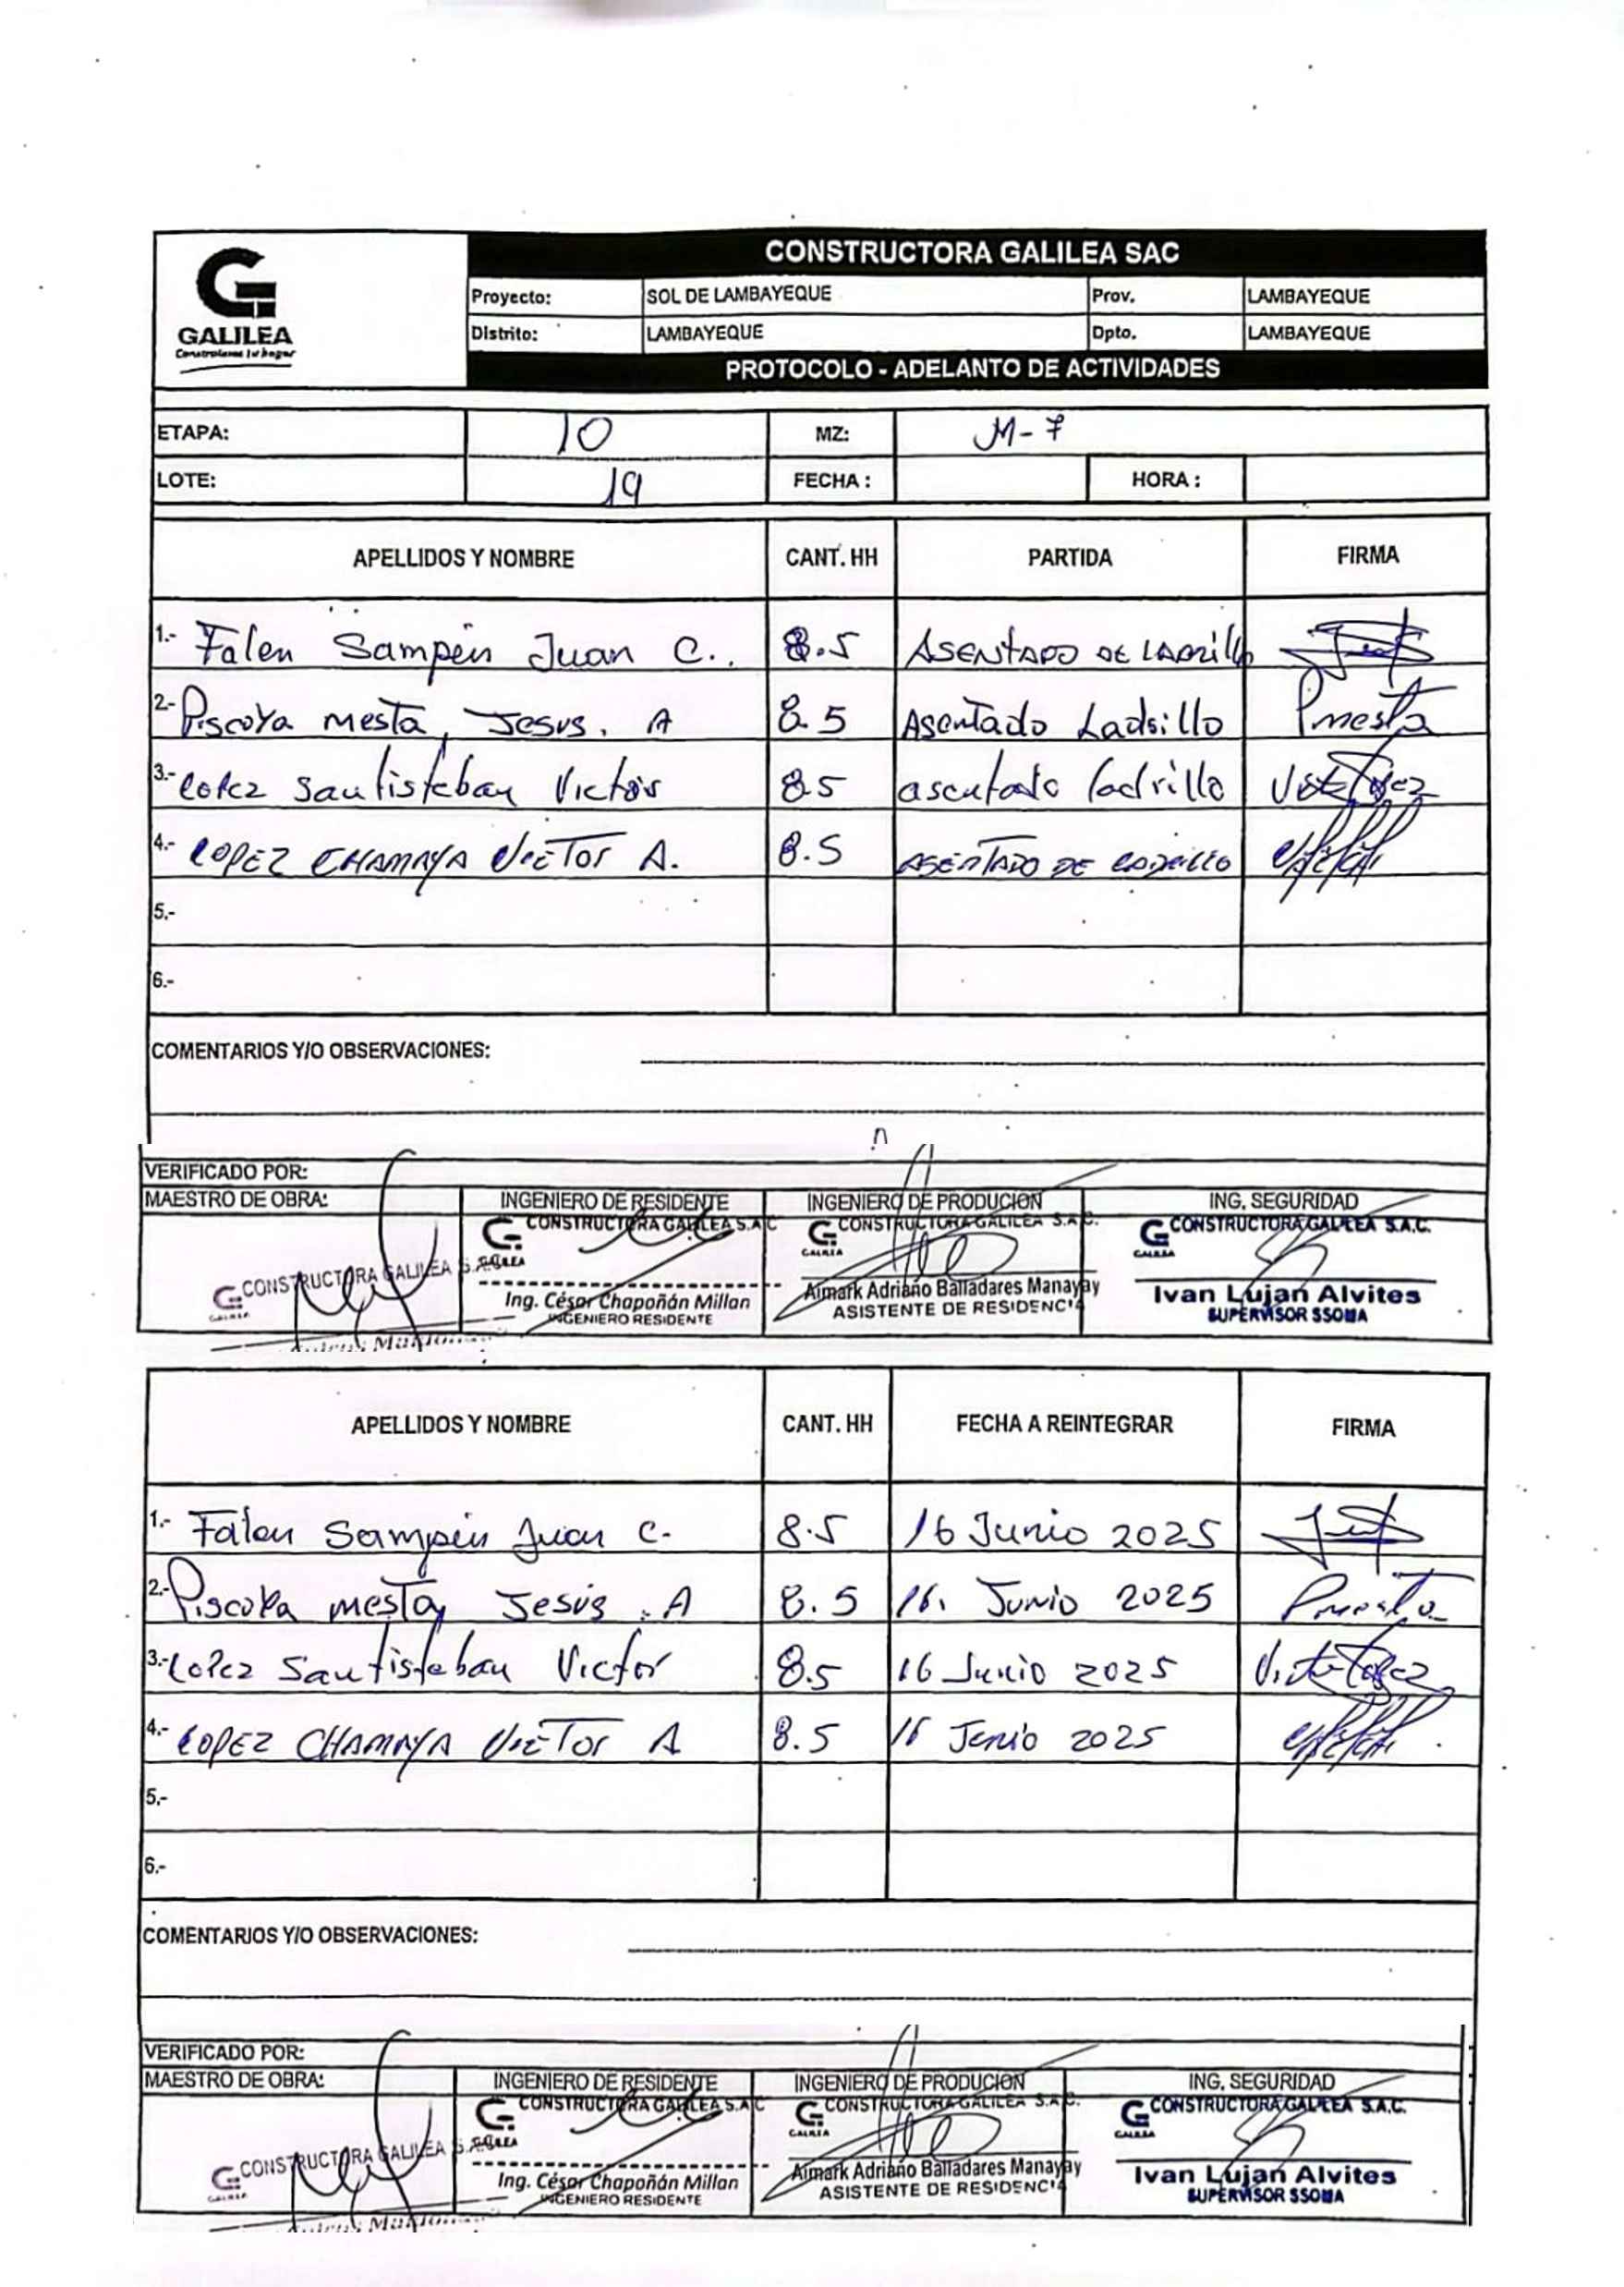 CONSTRUCTORA GALILEA SAC
G
GALILEA
Construimos tu hogar
Proyecto: SOL DE LAMBAYEQUE Prov. LAMBAYEQUE
Distrito: LAMBAYEQUE Dpto. LAMBAYEQUE
PROTOCOLO - ADELANTO DE ACTIVIDADES
ETAPA: 10 MZ: M-7
LOTE: 19 FECHA : HORA :
APELLIDOS Y NOMBRE CANT. HH PARTIDA FIRMA
1.- Falen Sampén Juan C. 8.5 ASENTADO DE LADRILLO
2.- Piscoya mesta, Jesus. A 8.5 Asentado Ladrillo Pmesta
3.- Lopez Santisteban Victor 8.5 asentado ladrillo
4.- LOPEZ CHAMAYA VICTOR A. 8.5 ASENTADO DE LADRILLO
5.-
6.-
COMENTARIOS Y/O OBSERVACIONES:
VERIFICADO POR:
MAESTRO DE OBRA: INGENIERO DE RESIDENTE INGENIERO DE PRODUCION ING. SEGURIDAD
CONSTRUCTORA GALILEA S.A.C. CONSTRUCTORA GALILEA S.A.C CONSTRUCTORA GALILEA S.A.C. CONSTRUCTORA GALILEA S.A.C.
GALILEA GALILEA GALILEA GALILEA
Ing. César Chapoñán Millan Aimark Adriano Balladares Manayay Ivan Lujan Alvites
INGENIERO RESIDENTE ASISTENTE DE RESIDENCIA SUPERVISOR SSOMA
APELLIDOS Y NOMBRE CANT. HH FECHA A REINTEGRAR FIRMA
1.- Falen Sampén Juan C. 8.5 16 Junio 2025
2.- Piscoya mesta, Jesús. A 8.5 16. Junio 2025 Pmesta
3.- Lopez Santisteban Victor 8.5 16 Junio 2025
4.- LOPEZ CHAMAYA VICTOR A 8.5 16 Junio 2025
5.-
6.-
COMENTARIOS Y/O OBSERVACIONES:
VERIFICADO POR:
MAESTRO DE OBRA: INGENIERO DE RESIDENTE INGENIERO DE PRODUCION ING. SEGURIDAD
CONSTRUCTORA GALILEA S.A.C. CONSTRUCTORA GALILEA S.A.C CONSTRUCTORA GALILEA S.A.C. CONSTRUCTORA GALILEA S.A.C.
GALILEA GALILEA GALILEA GALILEA
Ing. César Chapoñán Millan Aimark Adriano Balladares Manayay Ivan Lujan Alvites
INGENIERO RESIDENTE ASISTENTE DE RESIDENCIA SUPERVISOR SSOMA